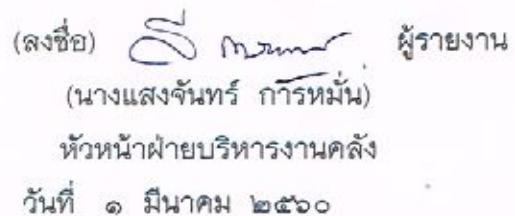 (ลงชื่อ) ผู้รายงาน
(นางแสงจันทร์ การหมั่น)
หัวหน้าฝ่ายบริหารงานคลัง
วันที่ ๑ มีนาคม ๒๕๖๐